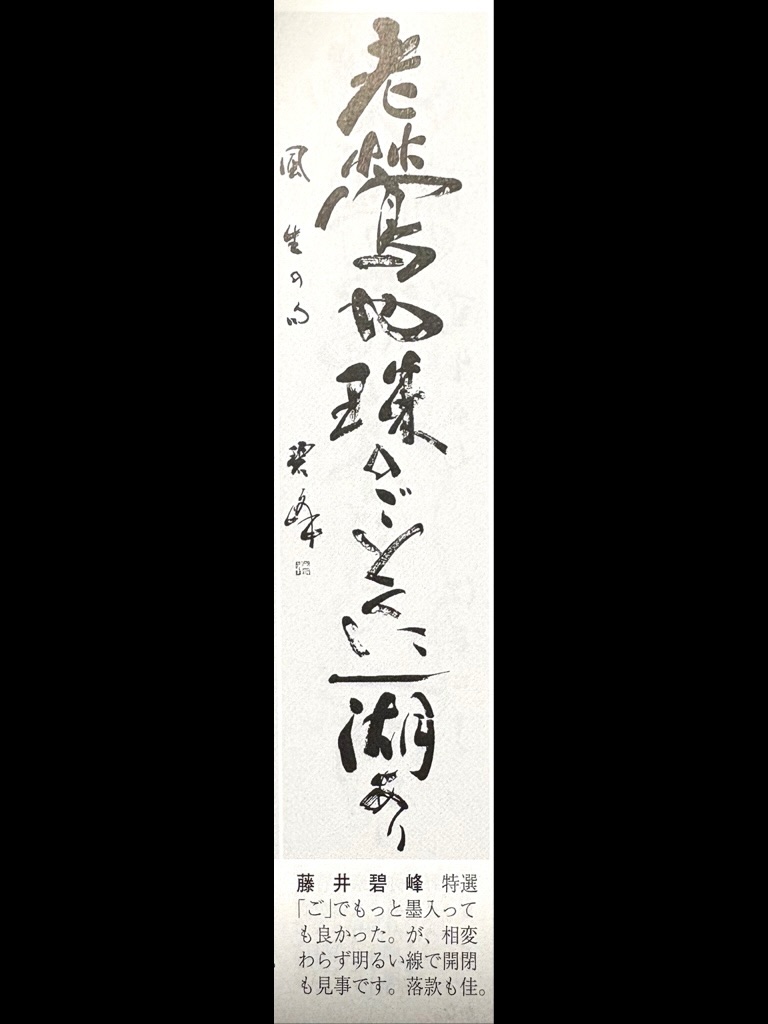 老鶯や珠のごとくに一湖あり
風生の句 碧峰
藤井碧峰 特選
「ご」でもっと墨入って
も良かった。が、相変
わらず明るい線で開閉
も見事です。落款も佳。